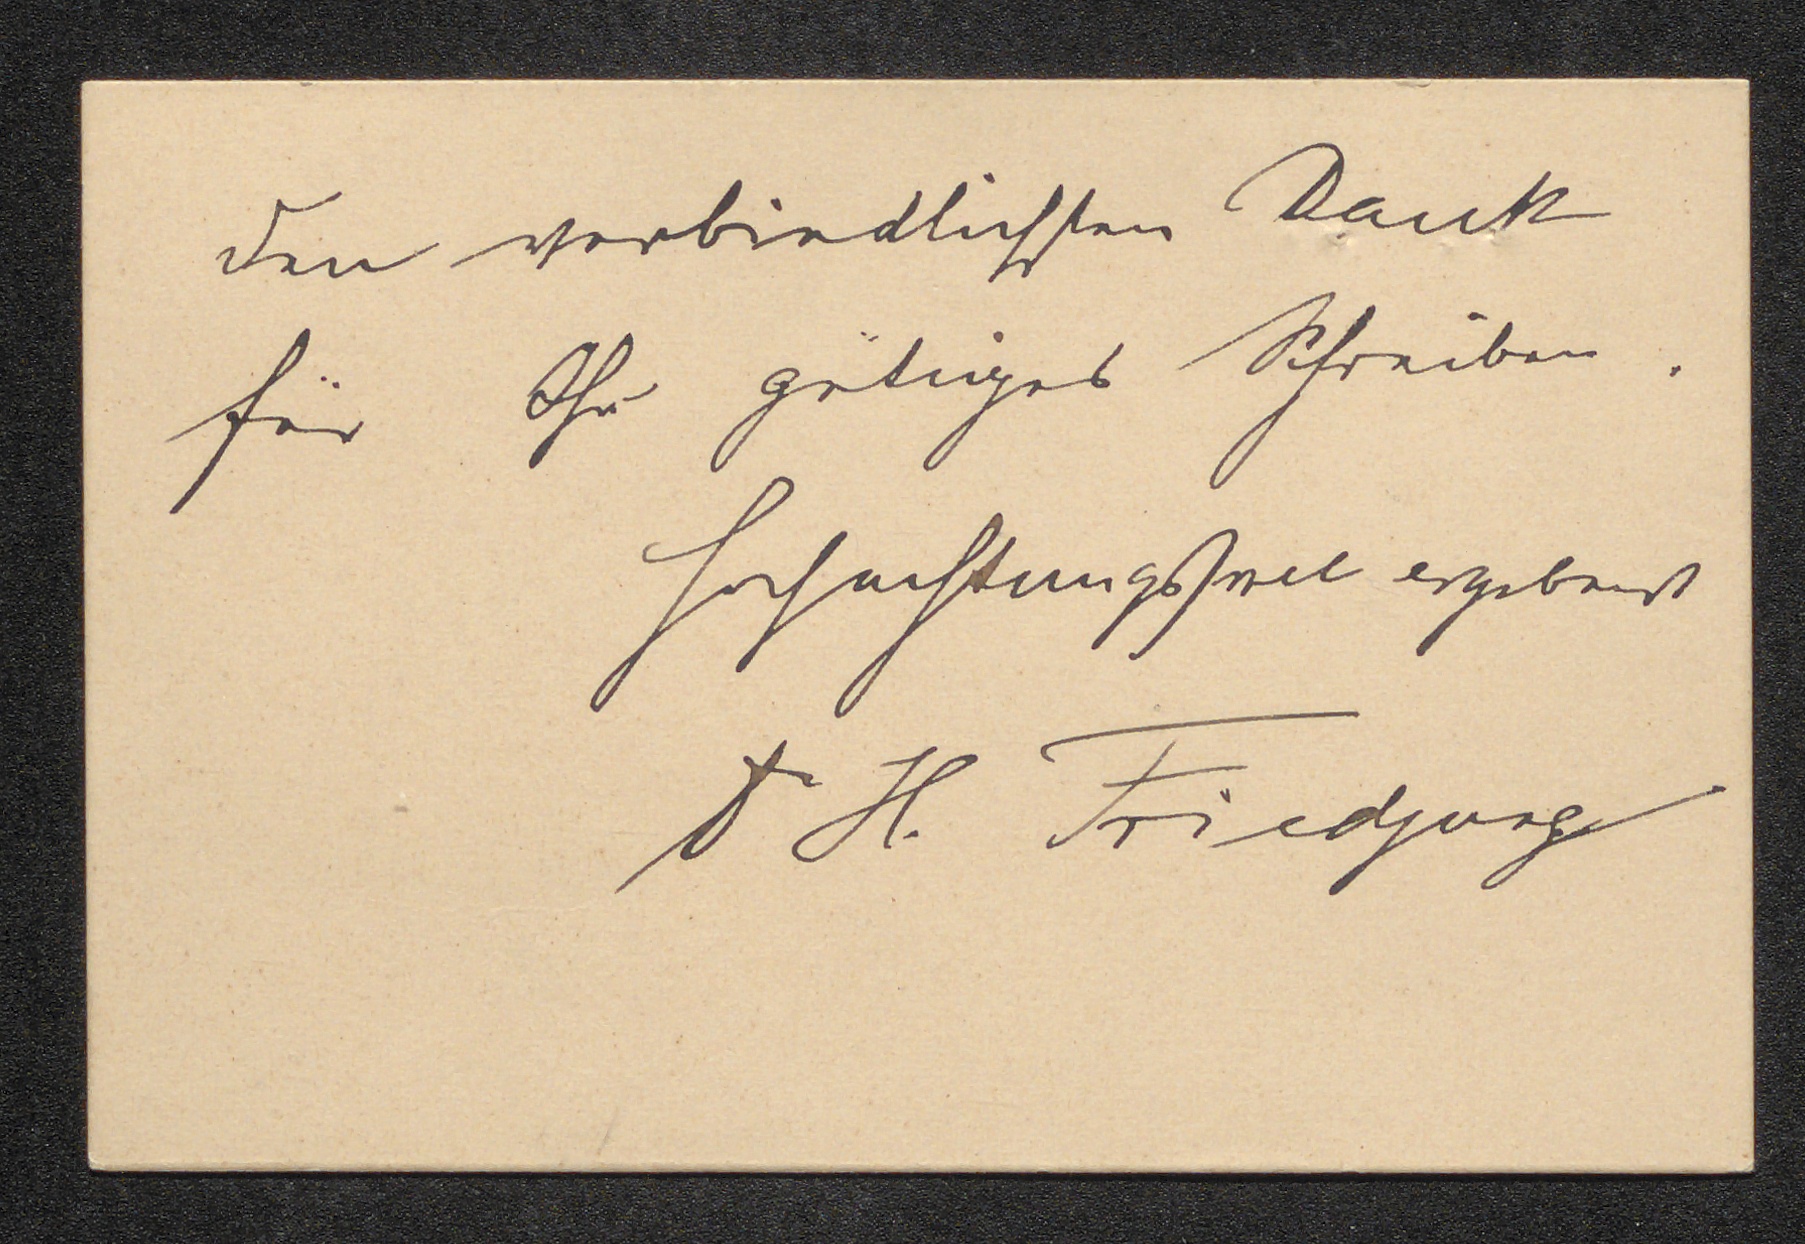 den verbindlichsten Dank
für Ihr gütiges Schreiben.
Hochachtungsvoll ergebenst
Dr H. Friedjung